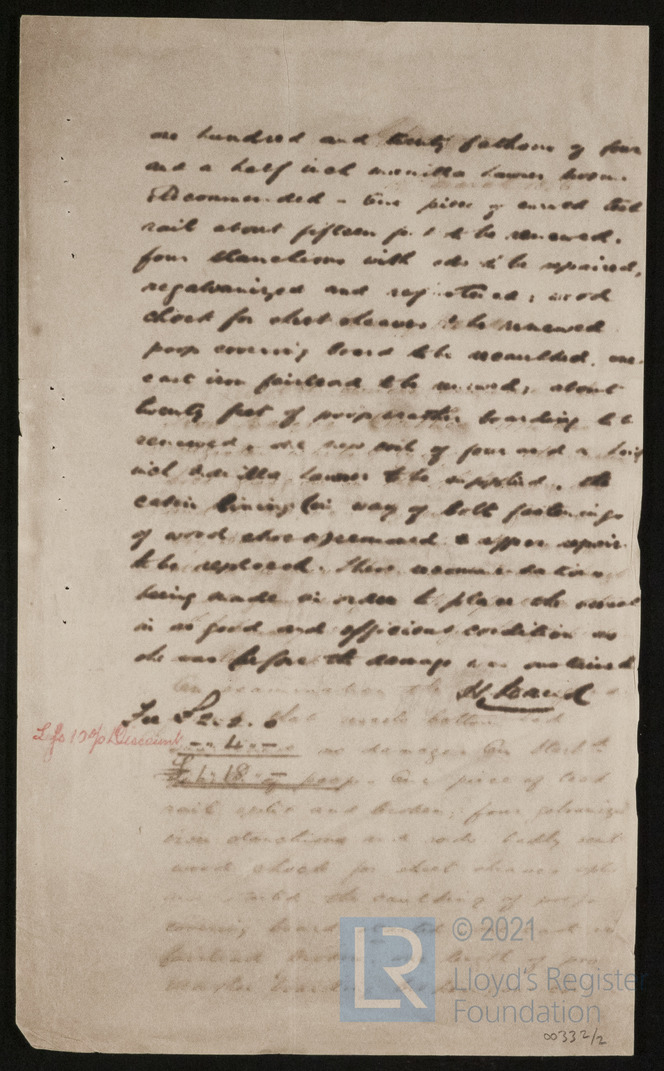 one hundred and twenty fathoms of four
and a half inch manilla hawser broken.
Recommended - One piece of curved teak
rail about fifteen feet to be renewed.
four stanchions with rods to be repaired,
regalvanized and refitted; wood
chock for sheet sheaves to be renewed
poop covering board to be recaulked, one
cast iron fairlead to be renewed; about
twenty feet of poop boarding to be
renewed, one new coil of four and a half
inch manilla hawser to be supplied, the
cabin lining in way of bolt fastenings
of wood removed & repairs
to be replaced. These recommendations
being made in order to place the vessel
in as good and efficient condition as
she was before the damage was sustained
Fee £2.2.0
Less 10% Discount
4
£1.18
on examination the
bottom
no damage On
poop. One piece of teak
rail split and broken; four galvanized
iron stanchions and rods badly bent
wood chock for sheet sheaves split
and started the caulking of poop
covering board started
fairlead broken; length of poop
boarding
LR
© 2021
Lloyd's Register
Foundation
00332/2